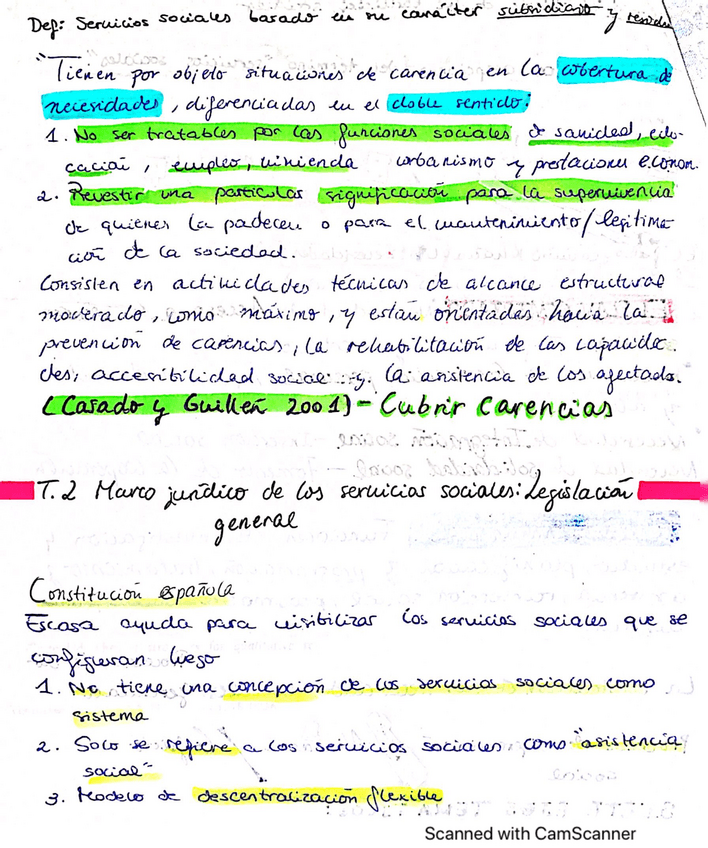 Def: Servicios sociales basado en su carácter subsidiario y
"Tienen por objeto situaciones de carencia en la cobertura de
necesidades, diferenciadas en el doble sentido:
1. No ser tratables por las funciones sociales de sanidad, edu-
cación, empleo, vivienda urbanismo y prestaciones econom.
2. Revestir una particular significación para la supervivencia
de quienes la padecen o para el mantenimiento/legitima
ción de la sociedad.
Consisten en actividades técnicas de alcance estructural
moderado, como máximo, y están orientadas hacia la
prevención de carencias, la rehabilitación de las capacida-
des, accesibilidad social y la asistencia de los afectados.
(Casado y Guillén 2001) - Cubrir carencias
T.2 Marco jurídico de los servicios sociales: Legislación
general
Constitución española
Escasa ayuda para visibilizar los servicios sociales que se
configuran luego
1. No tiene una concepción de los servicios sociales como
sistema
2. Solo se refiere a los servicios sociales como "asistencia
social"
3. Modelo de descentralización flexible
Scanned with CamScanner